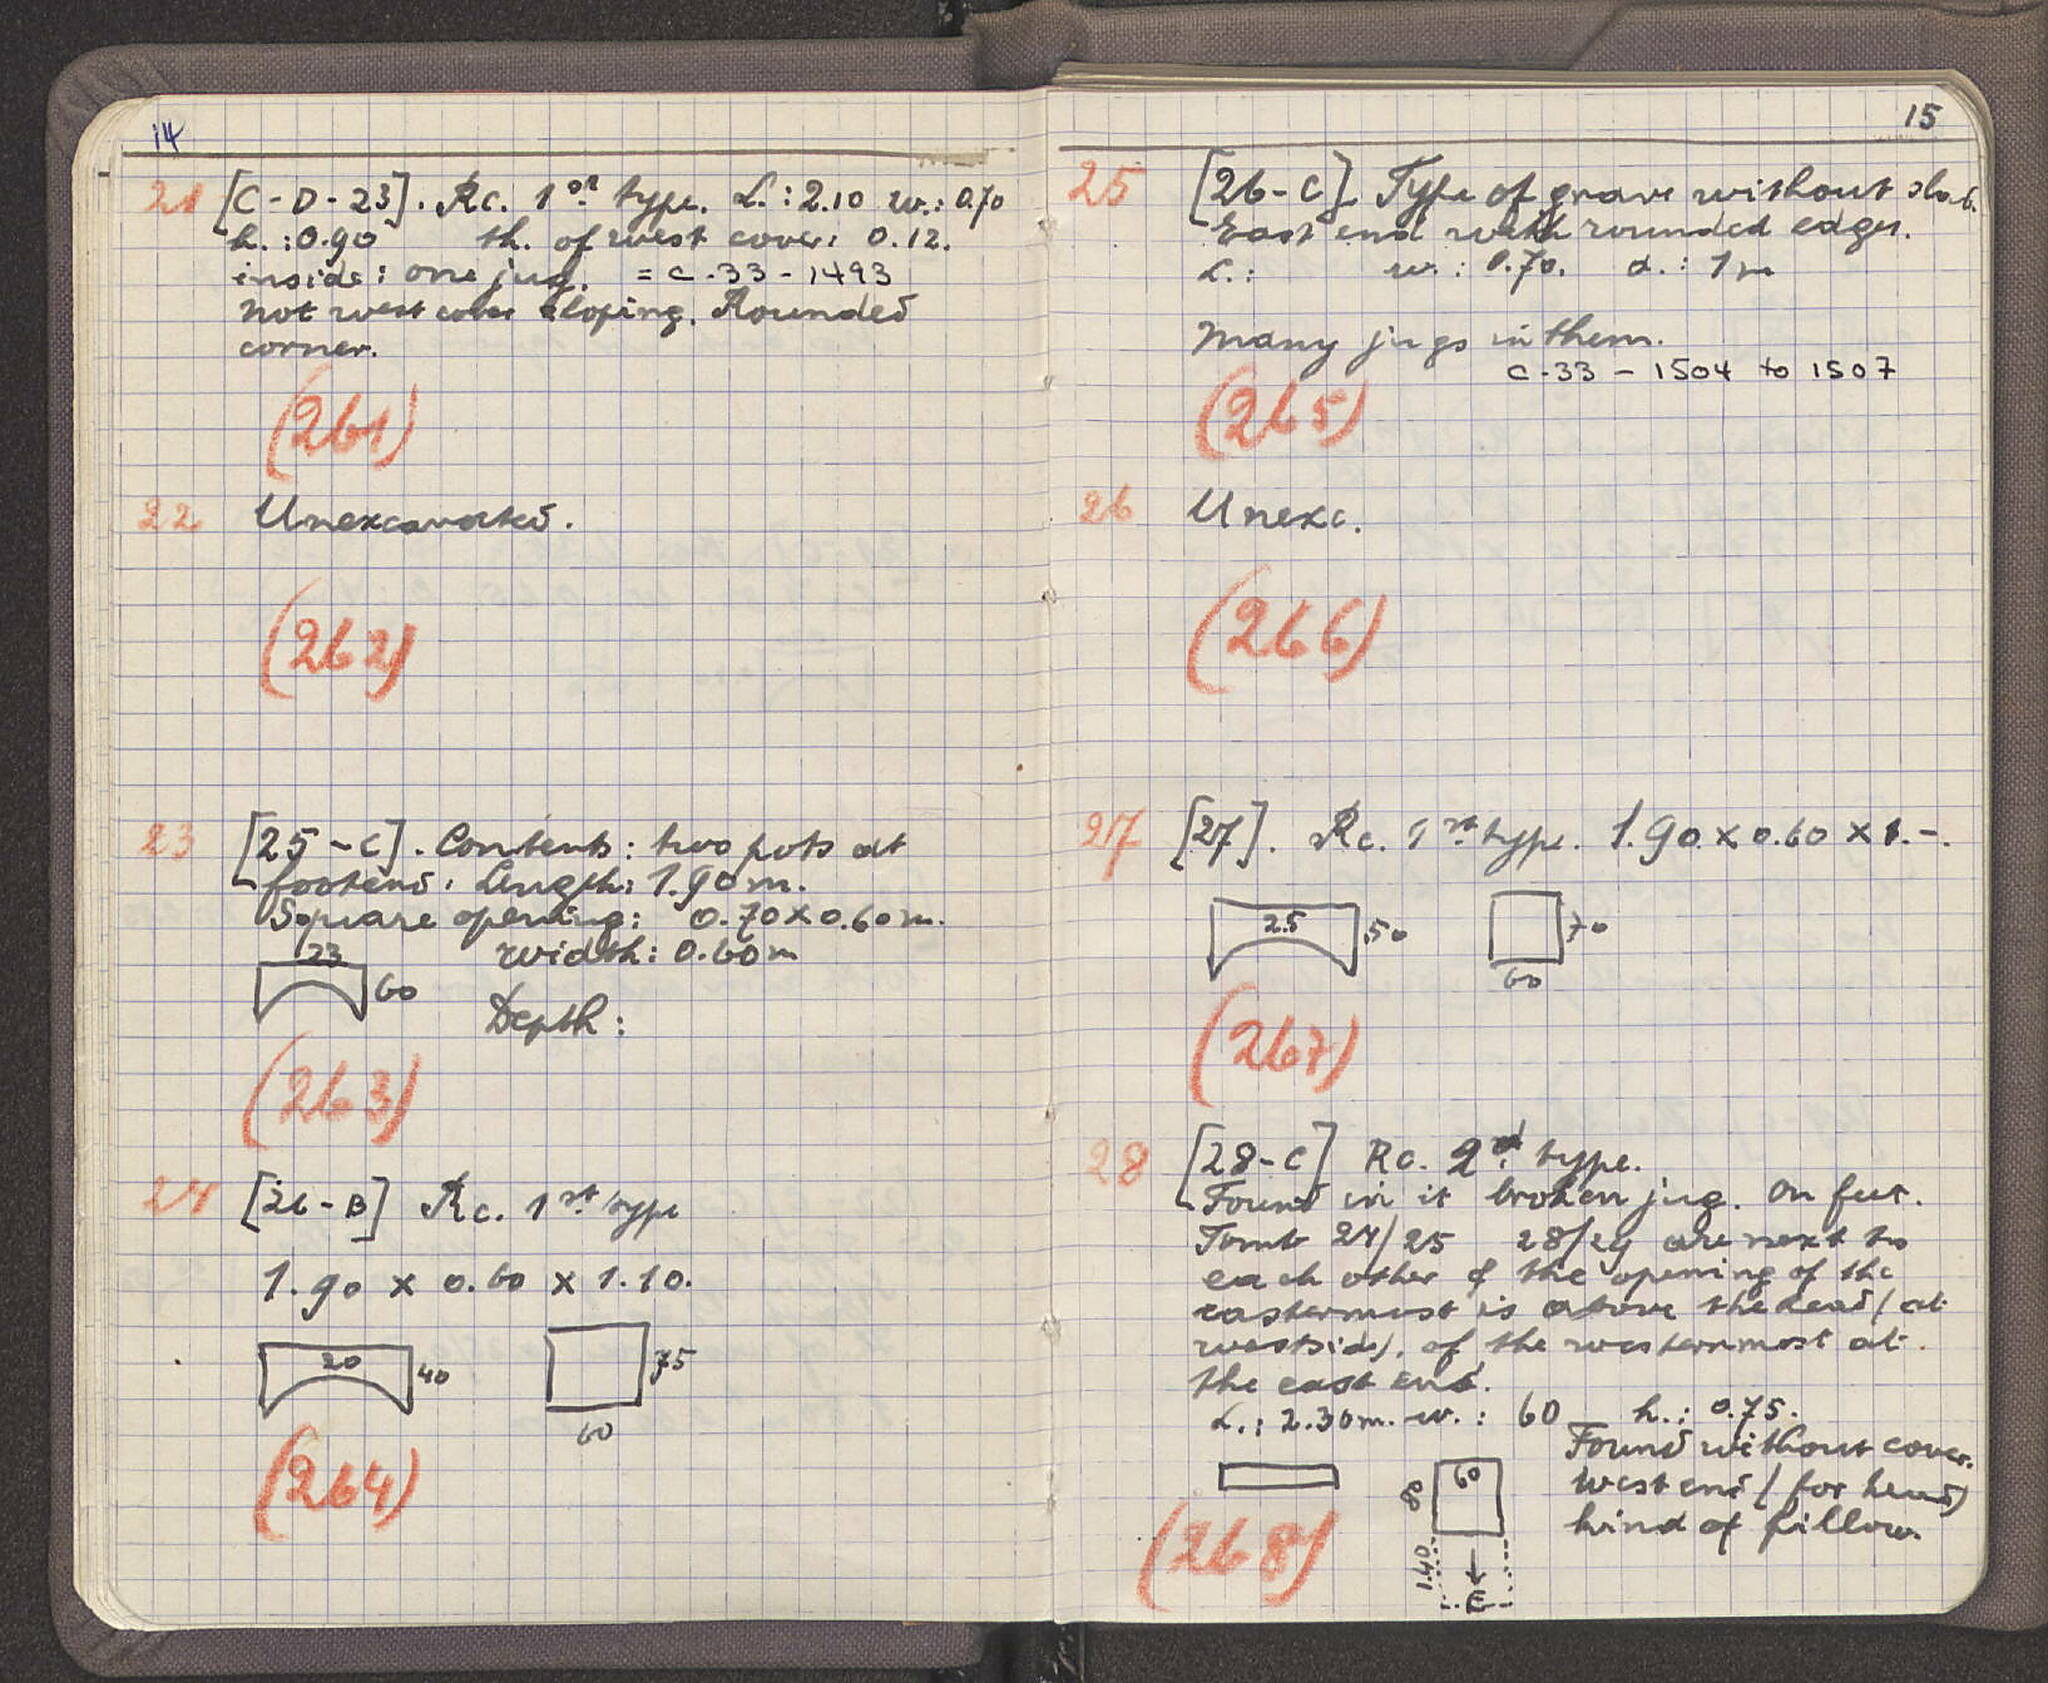 14
21 [C-D-23]. Rc. 1st type. L.: 2.10 w.: 0.70
h.: 0.90 th. of west cover: 0.12.
inside: one jug. = C.33-1493
Not west cover sloping. Rounded
corner.
(261)
22 Unexcavated.
(262)
23 [25-C]. Contents: two pots at
footend. Length: 1.90 m.
Square opening: 0.70 x 0.60 m.
23 width: 0.60 m
60
Depth:
(263)
24 [26-B] Rc. 1st type
1.90 x 0.60 x 1.10.
20 40 75
60
(264)
15
25 [26-C]. Type of grave without slab.
East end with rounded edges.
L.: w.: 0.70. d.: 1 m
Many jugs in them.
C.33-1504 to 1507
(265)
26 Unexc.
(266)
27 [27]. Rc. 1st type. 1.90 x 0.60 x 1.-.
25 50 70
60
(267)
28 [28-C] Rc. 2d type.
Found in it broken jug. On feet.
Tomb 24/25 28/29 are next to
each other & the opening of the
easternmost is above the head (at
westside), of the westernmost at
the east end.
L.: 2.30 m. w.: 60 h.: 0.75.
Found without cover.
West end (for head)
kind of pillow.
60
80
1.40
E
(268)